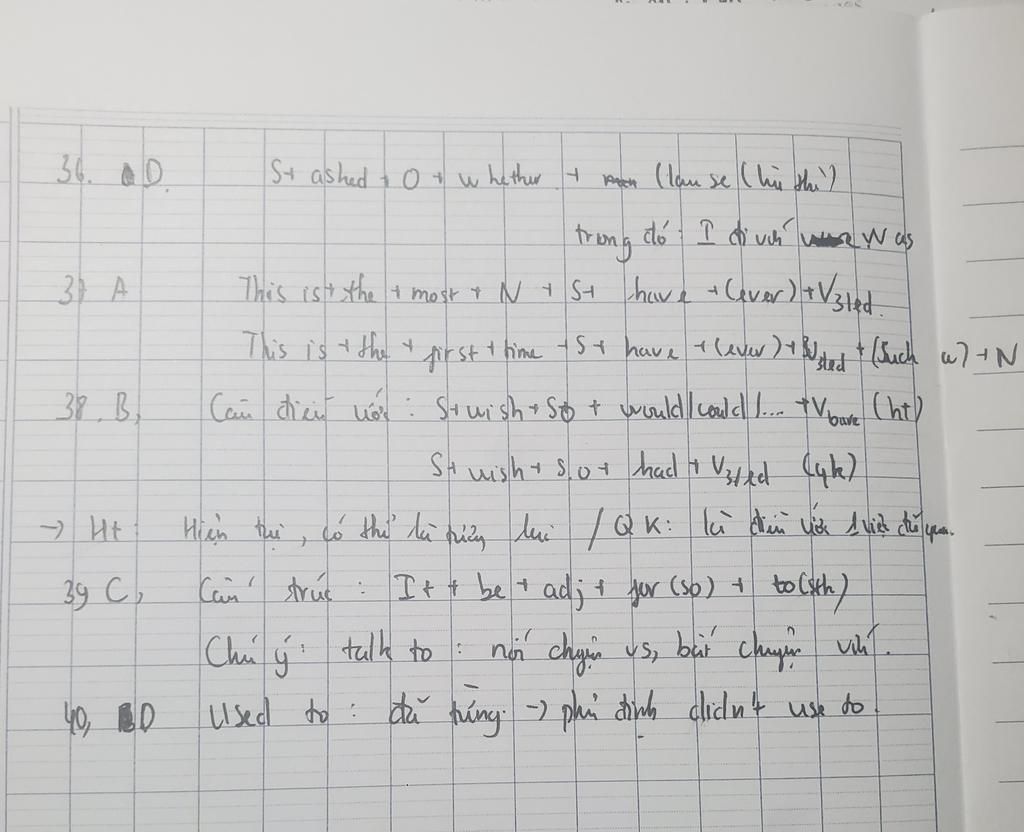 36. D. S+ asked + O + whether + (lau se (lùi thì)
trong đó: I đi với was
37 A This is + the + most + N + S+ have + (ever) + V3/ed.
This is + the + first + time + S + have + (ever) + V3/ed + (such a) + N
38. B, Câu điều ước: S+wish+SO + would/could/... +Vbare (ht)
S+ wish + S.O + had + V3/ed (qk)
→ Ht: Hiện tại, có thể là tương lai / QK: là điều ước 1 việc đã qua.
39 C, Cấu trúc: It + be + adj + for (so) + to(sth)
Chú ý: talk to: nói chuyện vs, bắt chuyện với.
40, D Used to: đã từng → phủ định didn't use to